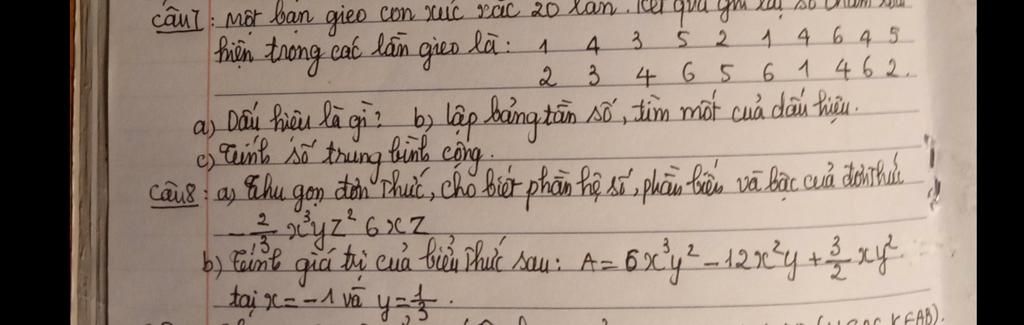 Câu 7: Một bạn gieo con xúc xắc 20 lần. Kết quả ghi lại số chấm xuất
hiện trong các lần gieo là: 1 4 3 5 2 1 4 6 4 5
2 3 4 6 5 6 1 4 6 2.
a) Dấu hiệu là gì? b) lập bảng tần số, tìm mốt của dấu hiệu.
c) Tính số trung bình cộng.
Câu 8: a) Thu gọn đơn thức, cho biết phần hệ số, phần biến và bậc của đơn thức
- 2/3 x³yz² 6xz
b) Tính giá trị của biểu thức sau: A = 6x³y² - 12x²y + 3/2 xy²
tại x = -1 và y = 1/3.